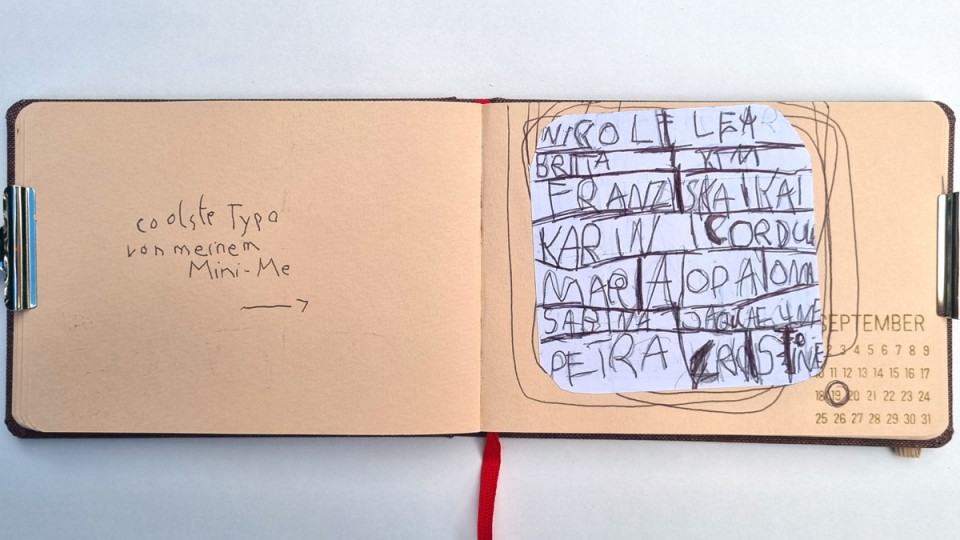 coolste Typo
von meinem
Mini-Me
NICOLE LEA
BRITTA KIM
FRANZISKA KAI
KARIN CORDU
MARIA OPA OMA
SABINA JAQUAELINE
PETRA KRISTINE
SEPTEMBER
2 3 4 5 6 7 8 9
11 12 13 14 15 16 17
18 19 20 21 22 23 24
25 26 27 28 29 30 31